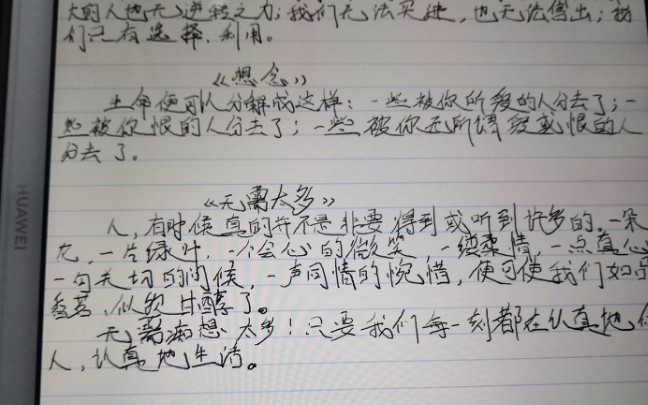 大的人也无逆转之力;我们无法买进,也无法借出;我
们只有选择、利用。
《想念》
生命便可以分解成这样:一些被你所爱的人分去了;一
些被你恨的人分去了;一些被你无所谓爱或恨的人
分去了。
《无需太多》
人,有时候真的并不是非要得到或听到许多的。一朵
花,一片绿叶,一个会心的微笑,一缕柔情,一点真心
一句关切的问候,一声同情的惋惜,便可使我们如
香茗,似饮甘醇了。
无需满想太多!只要我们每一刻都在认真地
人,认真地生活。
HUAWEI